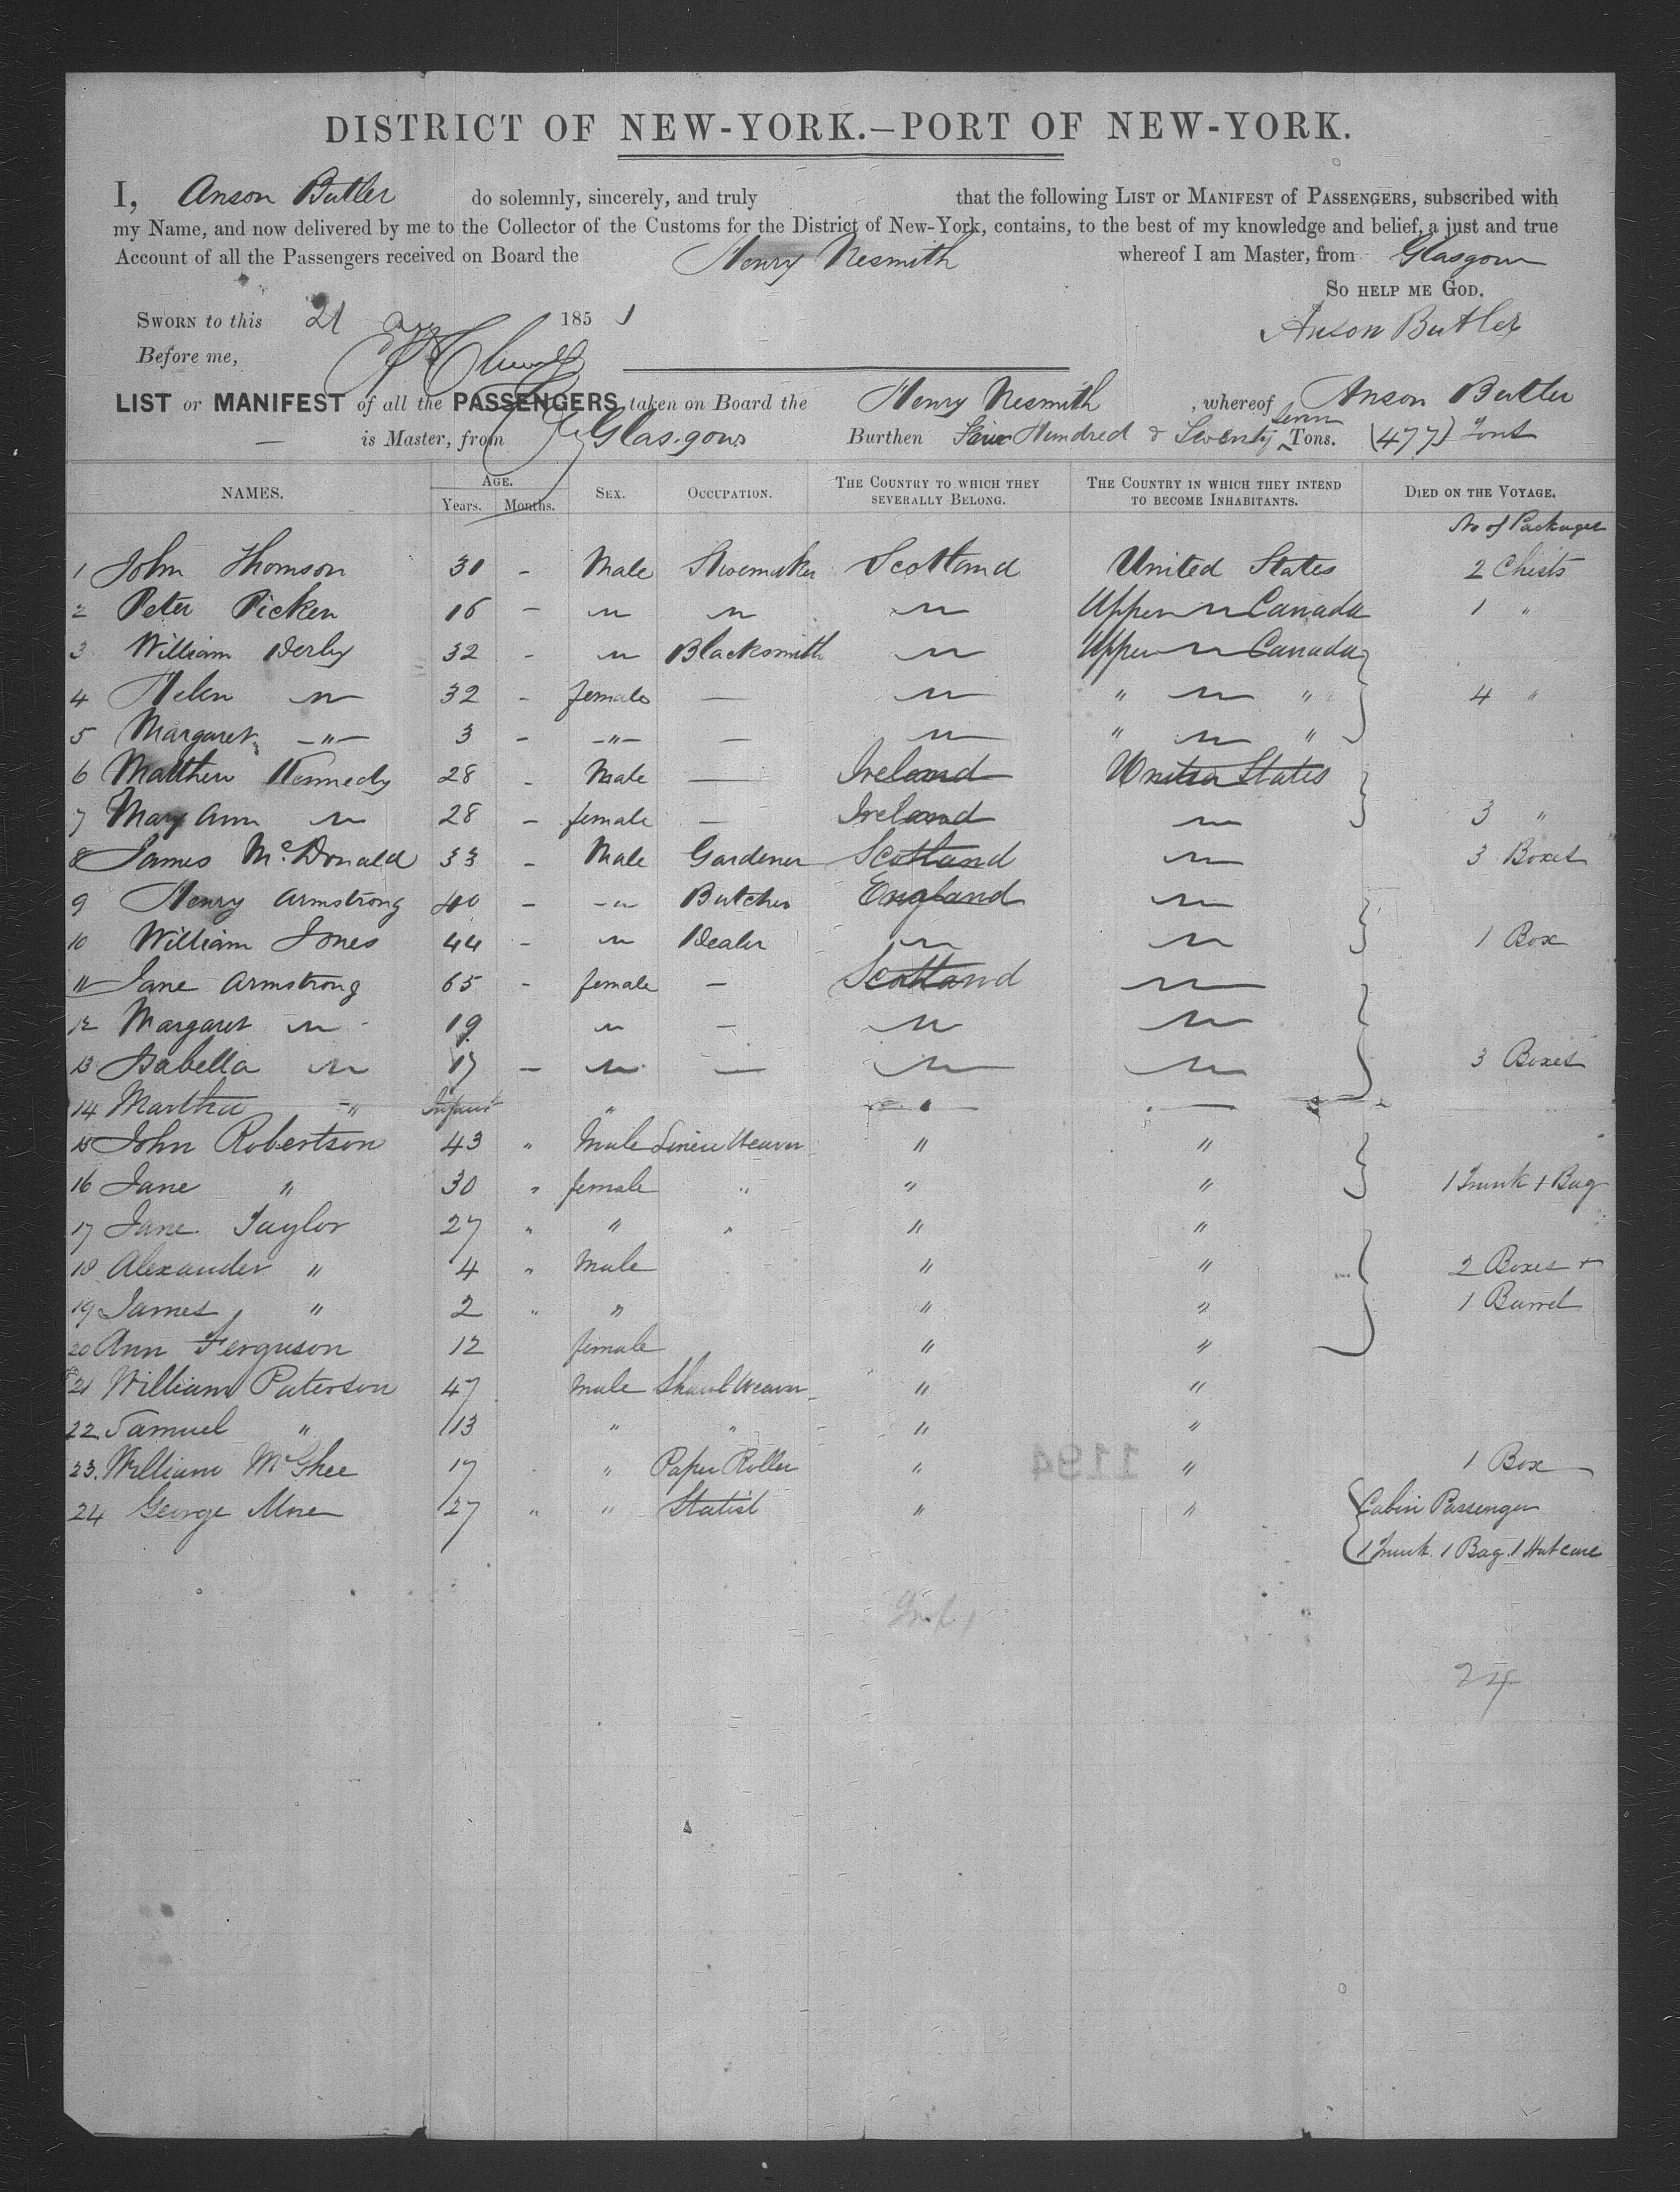 DISTRICT OF NEW-YORK.—PORT OF NEW-YORK.
I, Anson Butler do solemnly, sincerely, and truly that the following LIST or MANIFEST of PASSENGERS, subscribed with
my Name, and now delivered by me to the Collector of the Customs for the District of New-York, contains, to the best of my knowledge and belief, a just and true
Account of all the Passengers received on Board the Henry Nesmith whereof I am Master, from Glasgow
SO HELP ME GOD.
SWORN to this 21 1851 Anson Butler
Before me,
LIST or MANIFEST of all the PASSENGERS taken on Board the Henry Nesmith, whereof Anson Butler
— is Master, from Glasgow Burthen Four Hundred & Seventy seven Tons. (477) Tons
NAMES. AGE. Years. Months. SEX. OCCUPATION. THE COUNTRY TO WHICH THEY SEVERALLY BELONG. THE COUNTRY IN WHICH THEY INTEND TO BECOME INHABITANTS. DIED ON THE VOYAGE.
No of Packages
1 John Thomson 30 - Male Shoemaker Scotland United States 2 Chests
2 Peter Picken 16 - " " " Upper " Canada 1 "
3 William Derby 32 - " Blacksmith " Upper " Canada
4 Helen " 32 - female — " " " " 4 "
5 Margaret " 3 - " — " " " "
6 Matthew Kennedy 28 - Male — Ireland United States
7 Mary Ann " 28 - female — Ireland " 3 "
8 James McDonald 33 - Male Gardener Scotland " 3 Boxes
9 Henry Armstrong 40 - " Butcher England "
10 William Jones 44 - " Dealer " " 1 Box
11 Jane Armstrong 65 - female — Scotland "
12 Margaret " 19 " — " "
13 Isabella " 17 - " — " " 3 Boxes
14 Martha " Infant "
15 John Robertson 43 " Male Linen Weaver " "
16 Jane " 30 " female " " " 1 Trunk + Bag
17 Jane Taylor 27 " " " " "
18 Alexander " 4 " Male " " 2 Boxes +
19 James " 2 " " " " 1 Barrel
20 Ann Ferguson 12 female " "
21 William Paterson 47 Male Shawl Weaver " "
22 Samuel " 13 " " " "
23. William McGhee 17 " Paper Roller " " 1 Box
24 George More 27 " " " " Cabin Passenger
1 Trunk. 1 Bag. 1 Hat case
1194
24